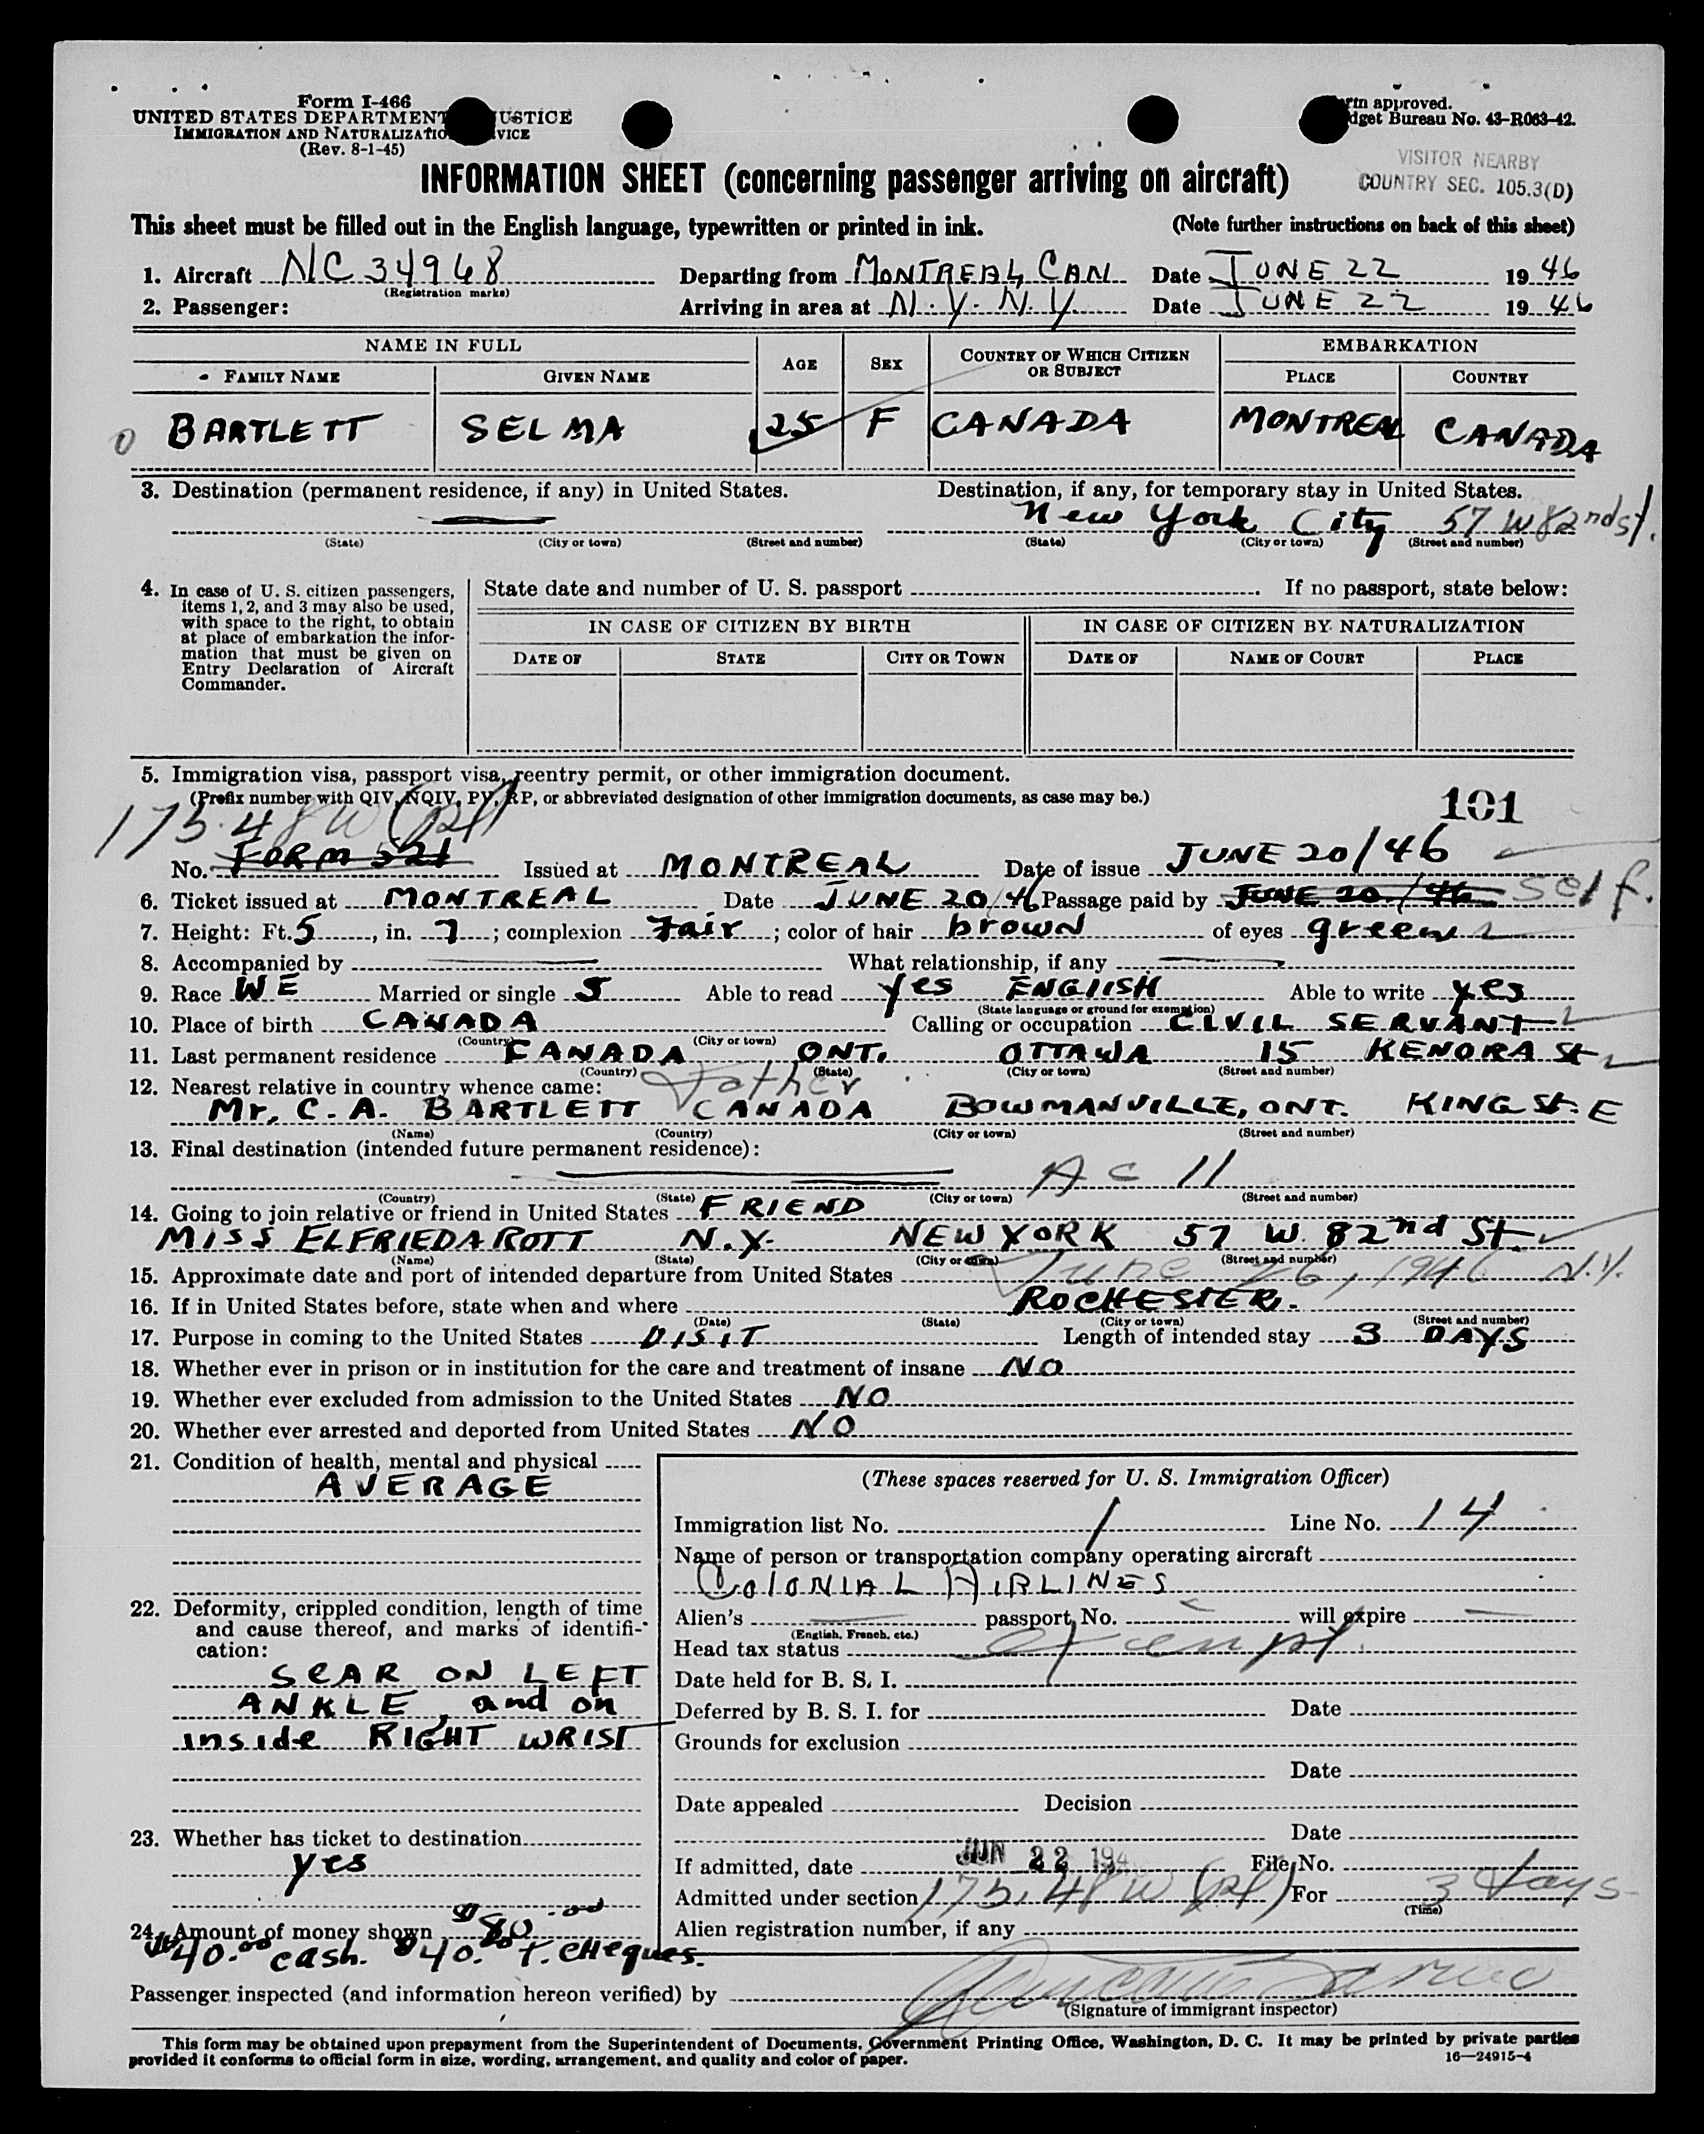 Form I-466
UNITED STATES DEPARTMENT JUSTICE
IMMIGRATION AND NATURALIZATIO VICE
(Rev. 8-1-45)
rm approved.
dget Bureau No. 43-R063-42.
VISITOR NEARBY
COUNTRY SEC. 105.3(D)
INFORMATION SHEET (concerning passenger arriving on aircraft)
This sheet must be filled out in the English language, typewritten or printed in ink. (Note further instructions on back of this sheet)
1. Aircraft NC34968 Departing from MONTREAL, CAN Date JUNE 22 1946
(Registration marks)
2. Passenger: Arriving in area at N.Y. N.Y. Date JUNE 22 1946
NAME IN FULL AGE SEX COUNTRY OF WHICH CITIZEN OR SUBJECT EMBARKATION
FAMILY NAME GIVEN NAME PLACE COUNTRY
0 BARTLETT SELMA 25 F CANADA MONTREAL CANADA
3. Destination (permanent residence, if any) in United States. Destination, if any, for temporary stay in United States.
New York City 57 W 82nd St.
(State) (City or town) (Street and number) (State) (City or town) (Street and number)
4. In case of U. S. citizen passengers, items 1, 2, and 3 may also be used, with space to the right, to obtain at place of embarkation the information that must be given on Entry Declaration of Aircraft Commander.
State date and number of U. S. passport . If no passport, state below:
IN CASE OF CITIZEN BY BIRTH IN CASE OF CITIZEN BY NATURALIZATION
DATE OF STATE CITY OR TOWN DATE OF NAME OF COURT PLACE
5. Immigration visa, passport visa, reentry permit, or other immigration document.
(Prefix number with QIV, NQIV, PV, RP, or abbreviated designation of other immigration documents, as case may be.)
101
175.48W (pl)
No. FORM 521 Issued at MONTREAL Date of issue JUNE 20/46
6. Ticket issued at MONTREAL Date JUNE 20/46 Passage paid by JUNE 20/46 self.
7. Height: Ft. 5, in. 7; complexion Fair; color of hair brown of eyes green
8. Accompanied by What relationship, if any
9. Race WE Married or single S Able to read yes ENGLISH Able to write yes
(State language or ground for exemption)
10. Place of birth CANADA Calling or occupation CIVIL SERVANT
(Country) (City or town)
11. Last permanent residence CANADA, ONT. OTTAWA 15 KENORA St
(Country) (State) (City or town) (Street and number)
12. Nearest relative in country whence came: Father
Mr. C. A. BARTLETT CANADA BOWMANVILLE, ONT. KING St. E
(Name) (Country) (City or town) (Street and number)
13. Final destination (intended future permanent residence):
A C 11
(Country) (State) (City or town) (Street and number)
14. Going to join relative or friend in United States FRIEND
MISS ELFRIEDA ROTT N.Y. NEW YORK 57 W. 82nd St.
(Name) (State) (City or town) (Street and number)
15. Approximate date and port of intended departure from United States June 26, 1946 N.Y.
16. If in United States before, state when and where ROCHESTER.
(Date) (State) (City or town) (Street and number)
17. Purpose in coming to the United States VISIT Length of intended stay 3 DAYS
18. Whether ever in prison or in institution for the care and treatment of insane NO
19. Whether ever excluded from admission to the United States NO
20. Whether ever arrested and deported from United States NO
21. Condition of health, mental and physical
AVERAGE
22. Deformity, crippled condition, length of time and cause thereof, and marks of identification:
SCAR ON LEFT
ANKLE, and on
inside RIGHT WRIST
23. Whether has ticket to destination
yes
24. Amount of money shown $80.00
$40.00 cash. $40.00 T. CHeques.
(These spaces reserved for U. S. Immigration Officer)
Immigration list No. 1 Line No. 14
Name of person or transportation company operating aircraft
COLONIAL AIRLINES
Alien's passport, No. will expire
(English, French, etc.)
Head tax status exempt.
Date held for B. S. I.
Deferred by B. S. I. for Date
Grounds for exclusion
Date
Date appealed Decision
Date
If admitted, date JUN 22 194 File No.
Admitted under section 175.48W (pl) For 3 days
(Time)
Alien registration number, if any
Passenger inspected (and information hereon verified) by
(Signature of immigrant inspector)
This form may be obtained upon prepayment from the Superintendent of Documents, Government Printing Office, Washington, D. C. It may be printed by private parties
provided it conforms to official form in size, wording, arrangement, and quality and color of paper. 16—24915-4